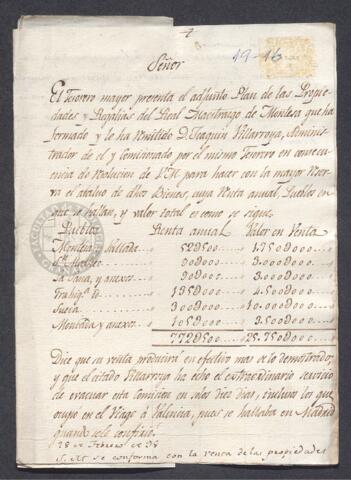 4
Señor
49-16
El Tesorero mayor presenta el adjunto Plan de las Propie-
dades y Regalias del Real Maestrazgo de Montesa que ha
formado y le ha remitido D. Joaquin Villarroya, Adminis-
trador de el y Comisionado por el mismo Tesorero en consecu-
encia de Resolucion de V.M. para hacer con la mayor Reser-
va el abaluo de dhos Bienes, cuya Renta anual, Pueblos en
que se hallan, y valor total es como se sigue.
Pueblos Renta anual Valor en Venta
Montesa y Vallada
Sn. Matheo 3.000000
La Jana, y anexos 90000 3.000000
135000 4.500000
Sueca 300000 10.000000
Moncada y anexos 105000 3.500000
772500 25.750000
Dice que su venta producirá en efectivo mas de lo demostrado;
y que el citado Villarroya ha echo el extraordinario servicio
de evacuar esta Comision en solos diez dias, inclusos los que
ocupó en el Viage á Valencia, pues se hallaba en Madrid
quando se le confirió.
28 de Febrero de 98
S.M. se conforma con la venta de las propiedades